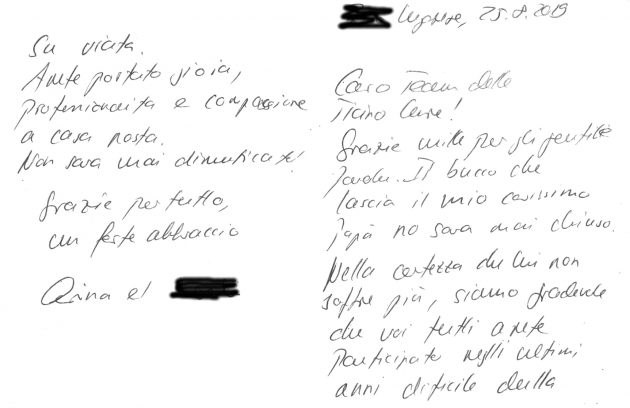 Lugnese, 25.8.2019
Caro Team della
Ticino Cure!
Grazie mille per gli gentile
Parole. Il bucco che
lascia il mio carissimo
Papà no sara mai chiuso.
Nella certezza che lui non
soffre più, siamo gradevole
che voi tutti avete
participato negli ultimi
anni dificile della
Su vicata.
Avete portato gioia,
professionalita e compassione
a casa nosta.
Non sara mai dimenticate!
Grazie per tutto,
un forte abbraccio
et